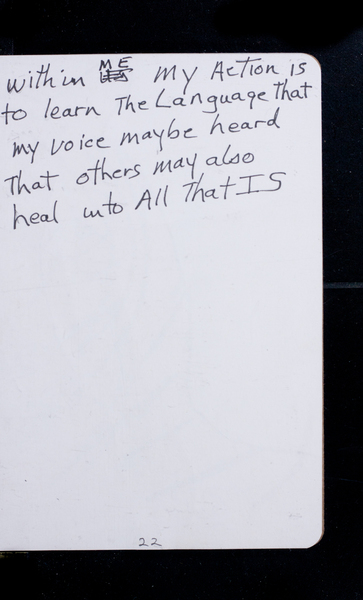 within ME My Action is
to learn The Language that
my voice maybe heard
That others may also
heal into All That IS
22